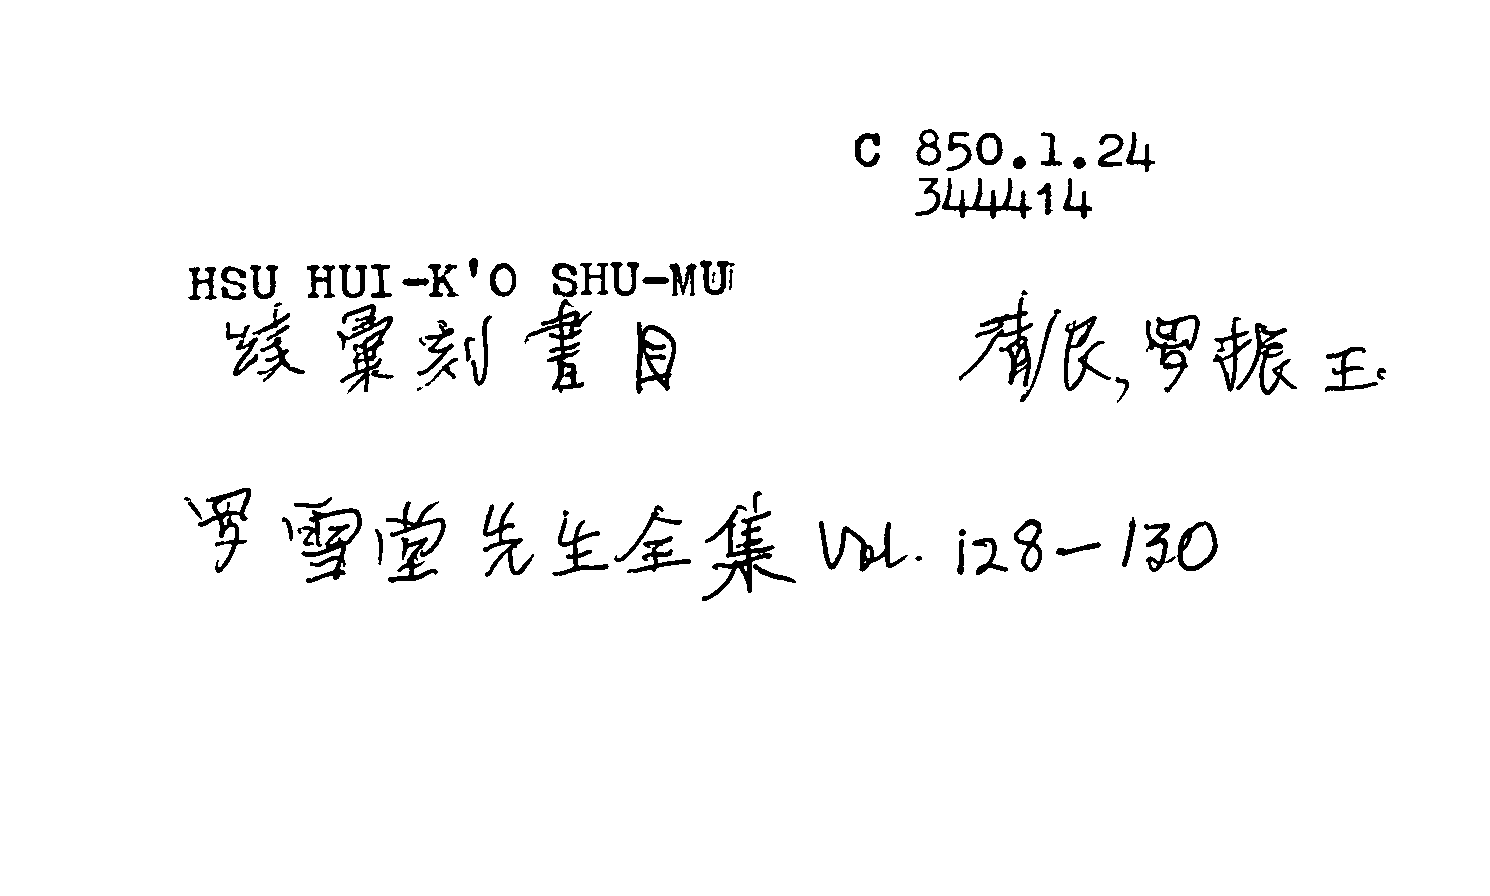 C 850.1.24
344414
HSU HUI-K'O SHU-MU
續彙刻書目 清民,罗振玉.
罗雪堂先生全集 Vol. 128-130